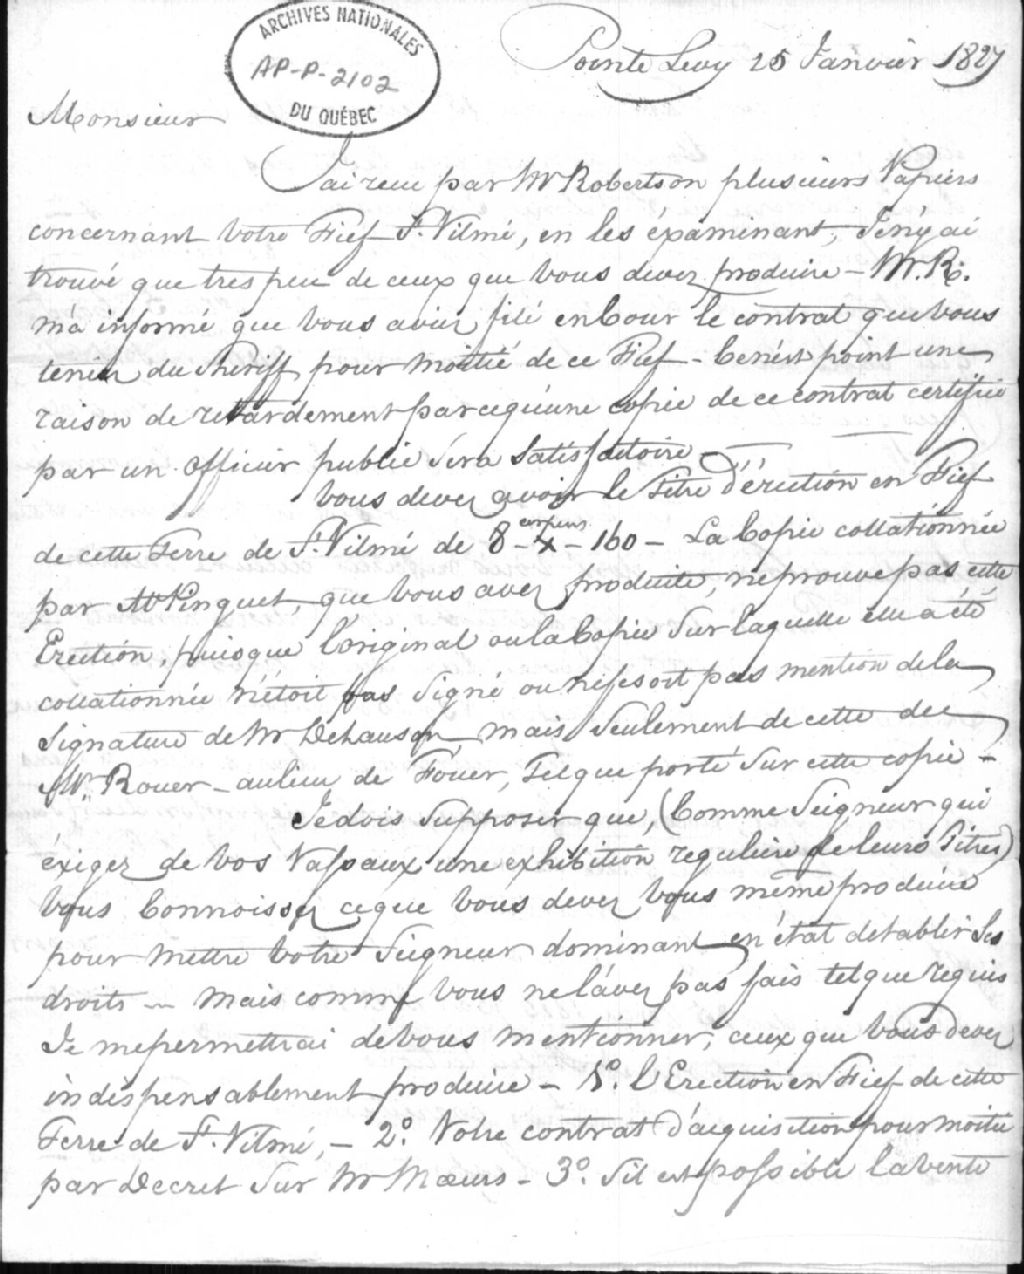 ARCHIVES NATIONALES
AP-P-2102
DU QUÉBEC
Pointe Levy 25 Janvier 1827
Monsieur
J'ai reçu par Mr Robertson plusieurs Papiers
concernant votre Fief St. Vilmé, en les éxamenant, J'en'y ai
trouvé que tres peu de ceux que vous devez produire – Mr. R.
m'a informé que vous aviez filé en Cour le contrat que vous
teniez du Sheriff pour moitié de ce Fief – Ce n'est point une
raison de retardement parcequ'une copie de ce contrat certifié
par un officier public séra satisfactoire –
Vous devez avoir le Titre d'érection en Fief
de cette Terre de St. Vilmé de 8 arpens – x – 160 – La Copie collationnée
par Mr Pinguet, que vous avez produite, ne prouve pas cette
Erection, puisque l'original ou la Copie sur laquelle elle a été
collationnée n'étoit pas signé ou ne fesoit pas mention de la
signature de Mr Dehauson mais seulement de cette de
Mr. Rouer – au lieu de Fouer, tel que porté sur cette copie –
Je dois supposer que, (Comme Seigneur qui
éxigez de vos Vassaux une exhibition reguliere de leurs Titres)
vous Connoissez ce que vous devez vous même produire
pour mettre votre Seigneur dominant en état detablir ses
droits – mais comme vous ne l'avez pas fais tel que requis
Je me permettrai de vous mentionner, ceux que vous devez
indispensablement produire – 1o. l'Erection en Fief de cette
Terre de St. Vilmé, – 2o. Votre contrat d'acquisition pour moitié
par Decret sur Mr Mœurs – 3o. S'il est possible la vente